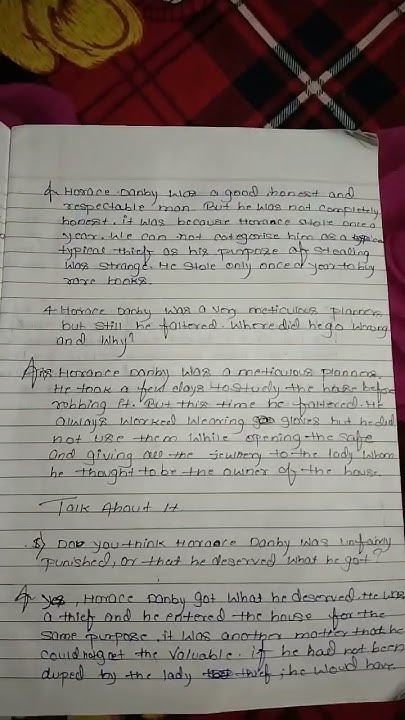 A Horace Danby was a good, honest and
respectable man. But he was not completely
honest. it was because Horance stole once a
year. We can not categorise him as a
typical thief as his purpose of stealing
was strange. He stole only once a year to buy
rare books.
4. Horace Danby was a very meticulous planner
but still he faltered. Where did he go wrong
and why?
Ans Horance Danby was a meticulous planner.
He took a few days to study the house before
robbing it. But this time he faltered. He
always worked wearing gloves but he did
not use them while opening the safe
and giving all the jewnery to the lady whom
he thought to be the owner of the house.
Talk About It
5) Do you think Horace Danby was unfairly
punished, or that he deserved what he got?
A yes, Horace Danby got what he deserved. He was
a thief and he entered the house for the
same purpose. it was another matter that he
could not get the valuable. if he had not been
duped by the lady thief, he would have